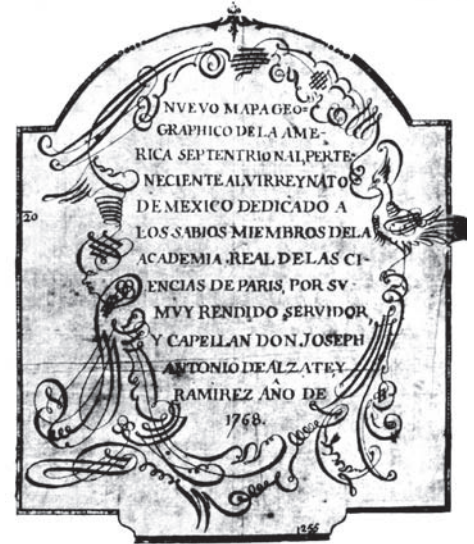 NVEVO MAPA GEO=
GRAPHICO DE LA AME-
RICA SEPTENTRIONAL, PERTE-
NECIENTE AL VIRREYNATO
DE MEXICO DEDICADO A
LOS SABIOS MIEMBROS DE LA
ACADEMIA REAL DE LAS CI-
ENCIAS DE PARIS, POR SV
MVY RENDIDO SERVIDOR,
Y CAPELLAN DON JOSEPH
ANTONIO DE ALZATE Y
RAMIREZ AÑO DE
1768.
20
1255